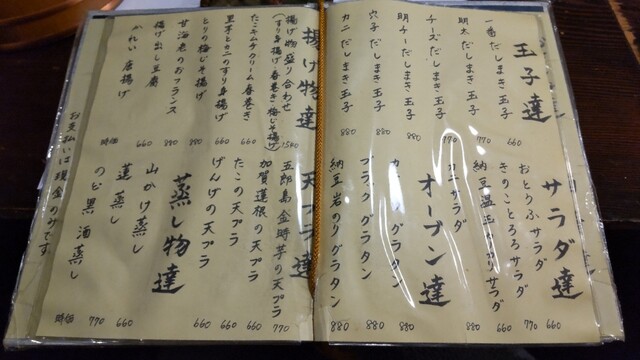 玉子達
一番だしまき玉子 660
明太だしまき玉子 770
チーズだしまき玉子 770
明チーだしまき玉子 880
穴子だしまき玉子
カニだしまき玉子 880
サラダ達
おとうふサラダ 660
きのことろろサラダ 770
納豆温玉 サラダ 660
カニサラダ
オーブン達
カニ グラタン 880
グラタン 880
納豆岩のりグラタン 880
揚げ物達
揚げ物盛り合わせ
(すり身揚げ 春巻き 梅しそ揚げ)
たこキムチクリーム春巻き 660
里芋とカニのすり身揚げ 660
とりの梅じそ揚げ 880
甘海老のおフランス 880
揚げ出し豆腐 660
かれい唐揚げ 時価
天プラ達
五郎島金時芋の天プラ 770
加賀蓮根の天プラ 660
たこの天プラ 660
げんげの天プラ 660
蒸し物達
山かけ蒸し 660
蓮蒸し 770
のど黒酒蒸し 時価
お支払いは現金のみです